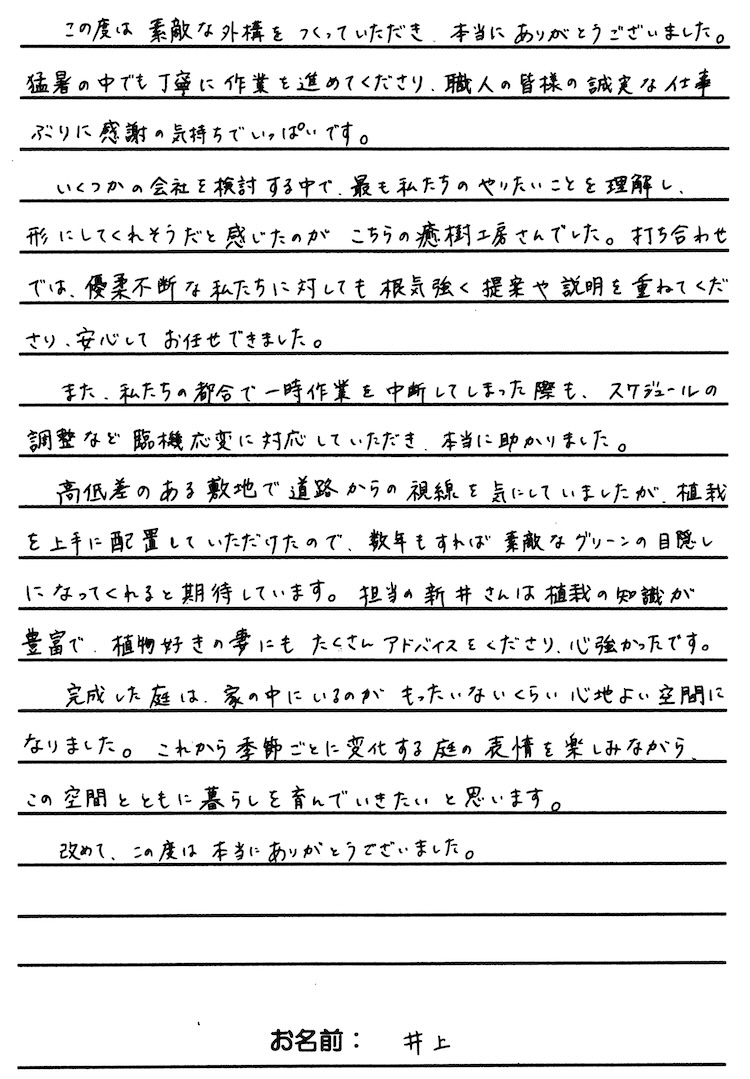 この度は素敵な外構をつくっていただき、本当にありがとうございました。
猛暑の中でも丁寧に作業を進めてくださり、職人の皆様の誠実な仕事
ぶりに感謝の気持ちでいっぱいです。
いくつかの会社を検討する中で、最も私たちのやりたいことを理解し、
形にしてくれそうだと感じたのが こちらの癒樹工房さんでした。打ち合わせ
では、優柔不断な私たちに対しても根気強く提案や説明を重ねてくだ
さり、安心してお任せできました。
また、私たちの都合で一時作業を中断してしまった際も、スケジュールの
調整など臨機応変に対応していただき、本当に助かりました。
高低差のある敷地で道路からの視線を気にしていましたが、植栽
を上手に配置していただけたので、数年もすれば素敵なグリーンの目隠し
になってくれると期待しています。担当の新井さんは植栽の知識が
豊富で、植物好きの妻にもたくさんアドバイスをくださり、心強かったです。
完成した庭は、家の中にいるのがもったいないくらい心地よい空間に
なりました。これから季節ごとに変化する庭の表情を楽しみながら、
この空間とともに暮らしを育んでいきたいと思います。
改めて、この度は本当にありがとうございました。
お名前： 井上